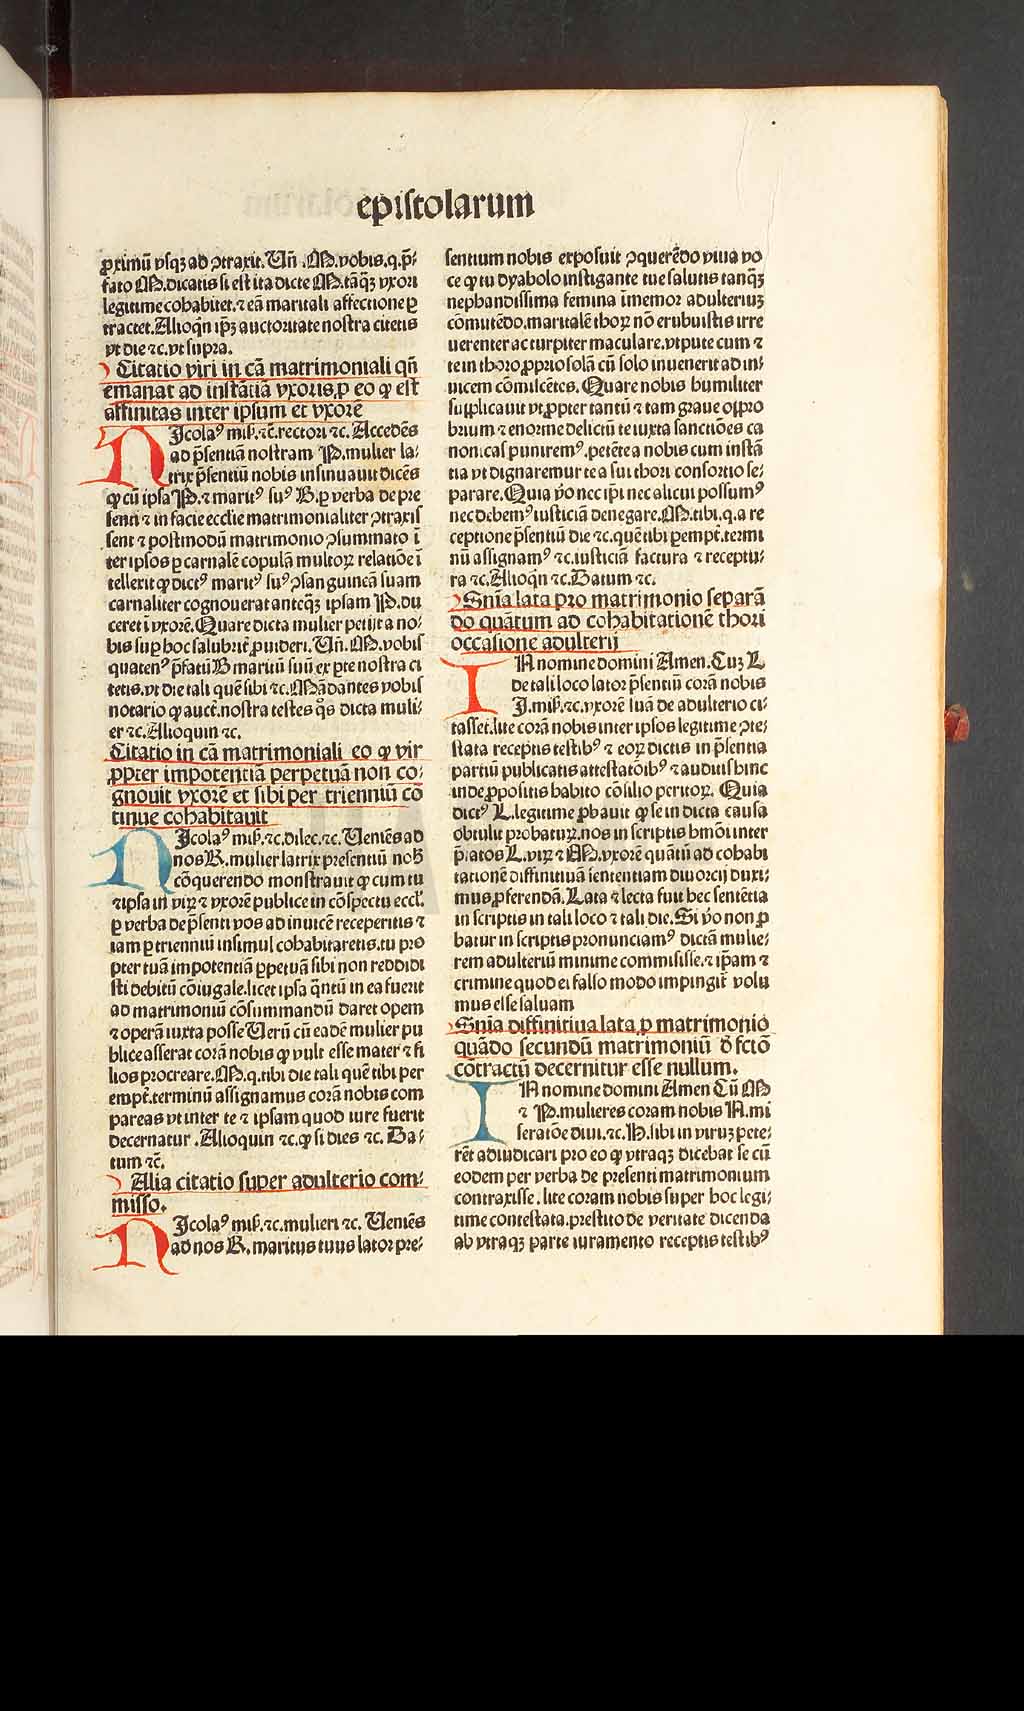 epistolarum
ꝓximũ vsqꝫ ad ꝯtraxit. Vñ .M. vobis.q.p̃⸗
fato M. dicatis si est ita dicte M. tãqꝫ vxori
legitime cohabitet.⁊ eã maritali affectione ꝑ
tractet. Alioqñ ip̃ꝫ auctoritate nostra citetis
vt die ⁊c. vt supra.
Citatio viri in cã matrimoniali qñ
emanat ad instãtiã vxoris, ꝑ eo ꝙ est
affinitas inter ipsum et vxorẽ
NIcolaꝰ mis̃. ⁊c̃. rectori ⁊c. Accedẽs
ad p̃sentiã nostram P. mulier la⸗
trix p̃sentiũ nobis insinuauit dicẽs
ꝙ cũ ipsa P. ⁊ maritꝰ suꝰ B. ꝑ verba de pre
senti ⁊ in facie ecclie matrimonialiter ꝯtraxis
sent ⁊ postmodũ matrimonio ꝯsummato ĩ
ter ipsos ꝑ carnalẽ copulã multoꝝ relatiõe ĩ
tellexit ꝙ dictꝰ maritꝰ suꝰ ꝯsanguineã suam
carnaliter cognouerat anteqꝫ ipsam P. du
ceret ĩ vxorẽ. Quare dicta mulier petijt a no⸗
bis sup hoc salubrit̃ ꝓuideri. Vñ. M. vobis
quatenꝰ p̃fatũ B maritũ suũ ex pte nostra ci
tetis. vt die tali quẽ sibi ⁊c. Mãdantes vobis
notario ꝙ auct̃. nostra testes q̊s dicta muli⸗
er ⁊c. Alioquin ⁊c.
Citatio in cã matrimoniali eo ꝙ vir
ꝓpter impotentiã perpetuã non co⸗
gnouit vxorẽ et sibi per trienniũ cõ
tinue cohabitauit
NIcolaꝰ mis̃. ⁊c. dilec. ⁊c. Veniẽs ad
nos R. mulier latrix presentiũ nob̃
cõquerendo monstrauit ꝙ cum tu
⁊ ipsa in virꝝ ⁊ vxorẽ publice in cõspectu eccl̃.
ꝑ verba de p̃senti vos ad inuicẽ receperitis ⁊
iam ꝑ trienniũ insimul cohabitaretis. tu pro
pter tuã impotentiã ꝑpetuã sibi non reddidi
sti debitũ cõiugale. licet ipsa q̃ntũ in ea fuerit
ad matrimoniũ cõsummandũ daret opem
⁊ operã iuxta posse Verũ cũ eadẽ mulier pu
blice asserat corã nobis ꝙ vult esse mater ⁊ fi
lios procreare. M. q. tibi die tali quẽ tibi per
empt̃. terminũ assignamus corã nobis com
pareas vt inter te ⁊ ipsam quod iure fuerit
decernatur . Alioquin ⁊c. ꝙ si dies ⁊c. Da⸗
tum ⁊c̃.
Alia citatio super adulterio com⸗
misso.
NIcolaꝰ mis̃. ⁊c. mulieri ⁊c. Veniẽs
ad nos R. maritus tuus lator pre⸗
sentium nobis exposuit ꝯquerẽdo viua vo
ce ꝙ tu dyabolo instigante tue salutis tanqꝫ
nephandissima femina ĩmemor adulteriuꝫ
cõmutẽdo. maritalẽ thoꝝ nõ erubuistis irre
uerenter ac turpiter maculare. vtpute cum ⁊
te in thoro ꝓprio solã cũ solo inuenerit ad in⸗
uicem cõmiscẽtes. Quare nobis humiliter
supplicauit vt ꝓpter tantũ ⁊ tam graue oppro
brium ⁊ enorme delictũ te iuxta sanctiões ca
non. cas puniremꝰ. petẽte a nobis cum instã
tia vt dignaremur te a sui thori consortio se⸗
parare. Quia ṽo nec ip̃i nec alicui possumꝰ
nec debemꝰ iusticiã denegare. M. tibi. q. a re
ceptione p̃sentiũ die ⁊c. quẽ tibi ꝑempt̃. termi
nũ assignamꝰ ⁊c. iusticiã factura ⁊ receptu⸗
ra ⁊c. Alioqñ ⁊c. Datum ⁊c.
Snĩa lata pro matrimonio separã
do quãtum ad cohabitationẽ thori
occasione adulterij
IN nomine domini Amen. Cuꝫ L
de tali loco lator p̃sentiũ corã nobis
J. mis̃. ⁊c. vxorẽ suã de adulterio ci⸗
tasset. lite corã nobis inter ipsos legitime ꝯte⸗
stata receptis testibꝰ ⁊ eoꝝ dictis in p̃sentia
partiũ publicatis attestatõibꝰ ⁊ auditis hinc
inde ꝓpositis habito cõsilio peritoꝝ. Quia
dictꝰ L. legitime ꝓbauit ꝙ se in dicta causa
obtulit probatuꝝ. nos in scriptis hmõi inter
p̃fatos L. virꝝ ⁊ M. vxorẽ quãtũ ad cohabi
tationẽ diffinitiuã sententiam diuorcij duxi⸗
mus ꝓferendã. Lata ⁊ lecta fuit hec sentẽtia
in scriptis in tali loco ⁊ tali die. Si ṽo non ꝓ
batur in scriptis pronunciamꝰ dictã mulie⸗
rem adulteriũ minime commisisse. ⁊ ip̃am ⁊
crimine quod ei falso modo impingit̃ volu
mus esse saluam
Snĩa diffinitiua lata ꝓ matrimonio
quãdo secundũ matrimoniũ d̃ fctõ
cõtractũ decernitur esse nullum.
IN nomine domini Amen Cũ M
⁊ P. mulieres coram nobis N. mi
seratõe diui. ⁊c. H. sibi in viruꝫ pete⸗
rẽt adiudicari pro eo ꝙ vtraqꝫ dicebat se cũ
eodem per verba de presenti matrimonium
contraxisse. lite coram nobis super hoc legi⸗
time contestata. prestito de veritate dicenda
ab vtraqꝫ parte iuramento receptis testibꝰ